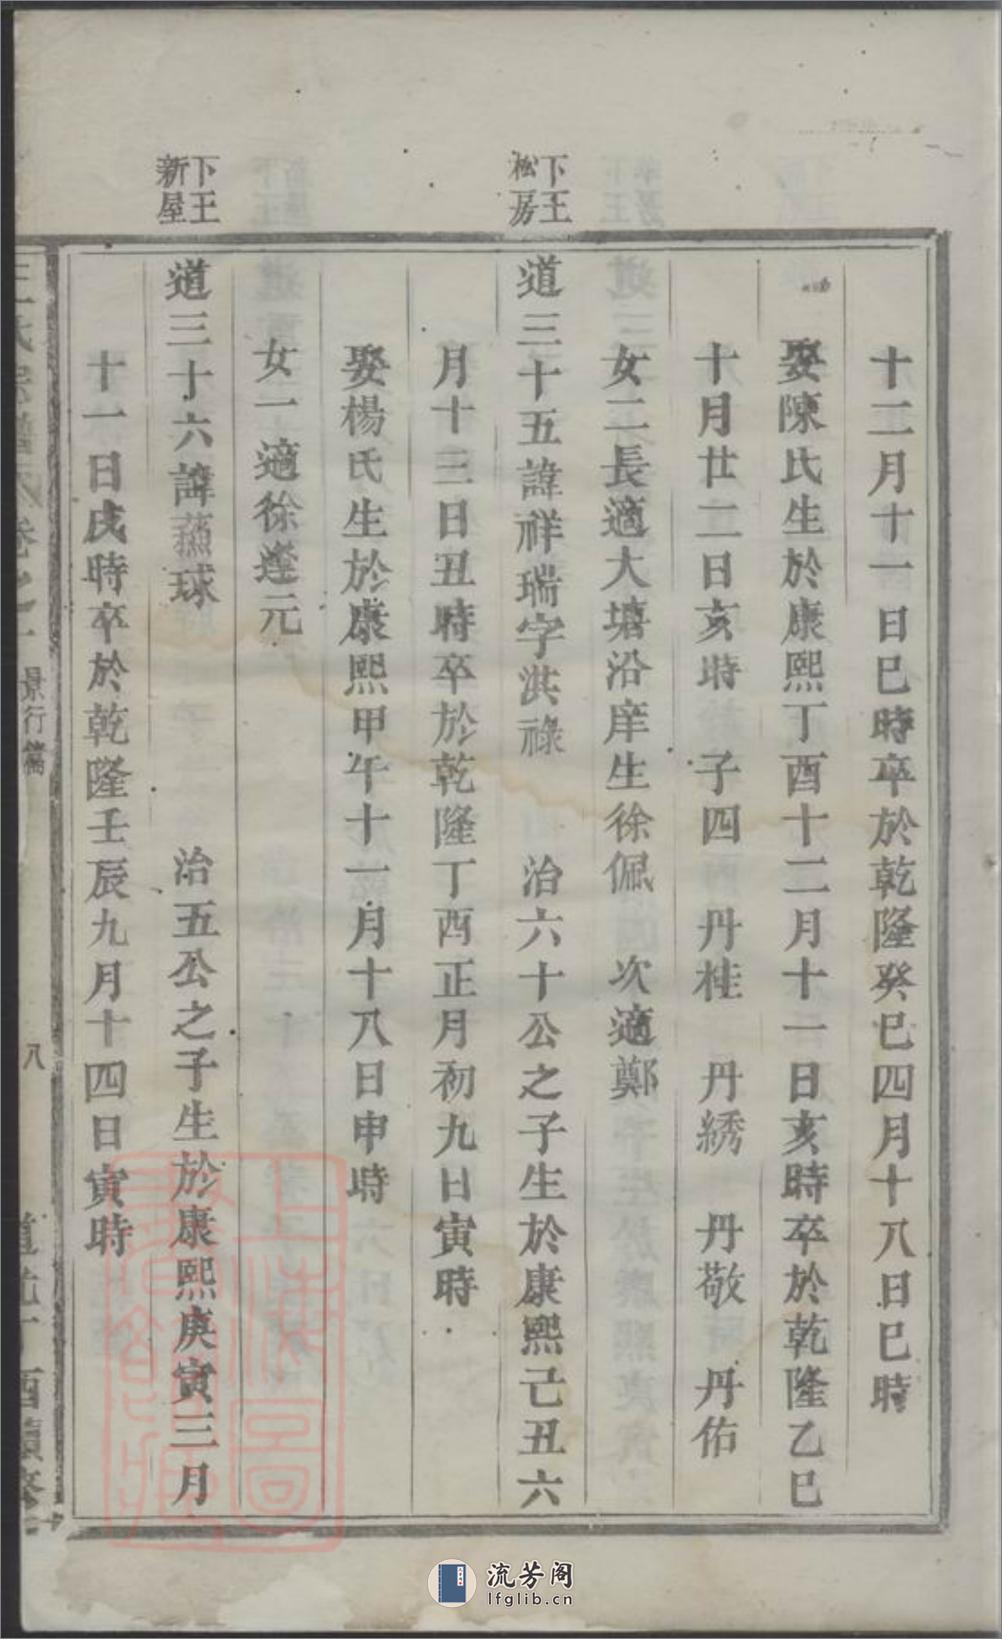 十二月十一日巳時卒於乾隆癸巳四月十八日巳時
娶陳氏生於康熙丁酉十二月十一日亥時卒於乾隆乙巳
十月廿二日亥時 子四 丹桂 丹綉 丹敬 丹佑
女二長適大塘沿庠生徐佩 次適鄭
下王
松房
道三十五諱祥瑞字淇祿 治六十公之子生於康熙己丑六
月十三日丑時卒於乾隆丁酉正月初九日寅時
娶楊氏生於康熙甲午十一月十八日申時
女一適徐逢元
下王
新屋
道三十六諱蘓球 治五公之子生於康熙庚寅三月
十一日戌時卒於乾隆壬辰九月十四日寅時
王氏宗譜 卷之一 景行篇 八 道光丁酉續修
流芳阁
lfglib.cn